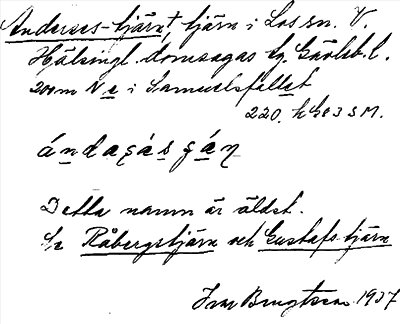 Anderses-tjärn†, tjärn i Los sn. V.
Hälsingl. domsagas tg. Gävleb. l.
200 m N e i Samuelsfallet
220. h G83 S M.
ándagásgáṇ
Detta namn är äldst.
Se Råbergstjärn och Gustafs-tjärn
Ivar Bengtsson 1937